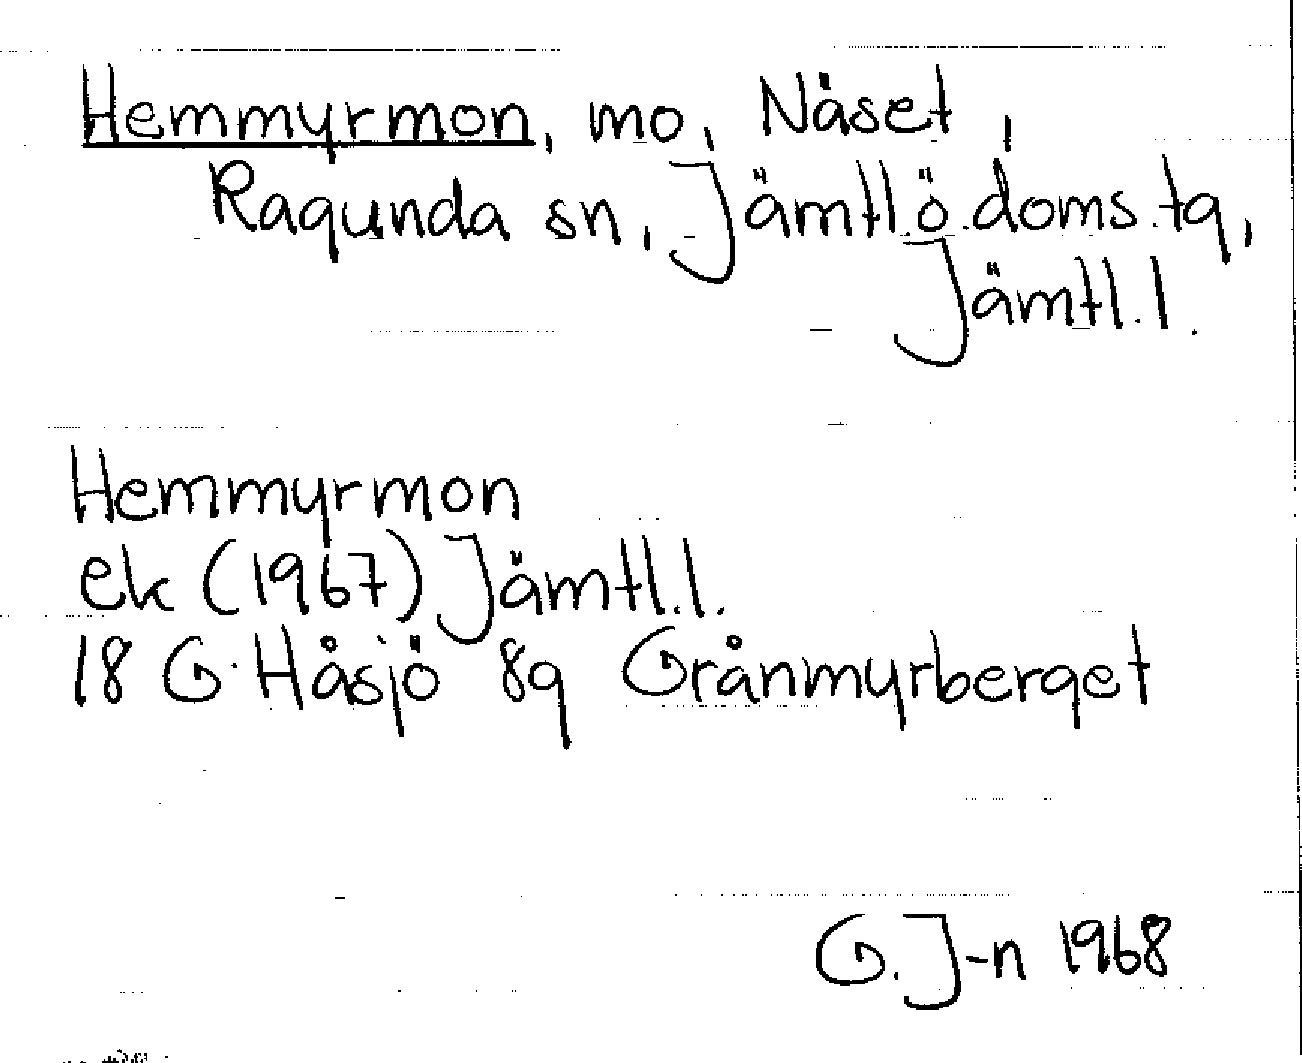 Hemmyrmon, mo, Näset,
Ragunda sn, Jämtl.ö.doms.tg,
Jämtl.l.
Hemmyrmon
ek (1967) Jämtl.l.
18 G Håsjö 8g Grånmyrberget
G. J-n 1968